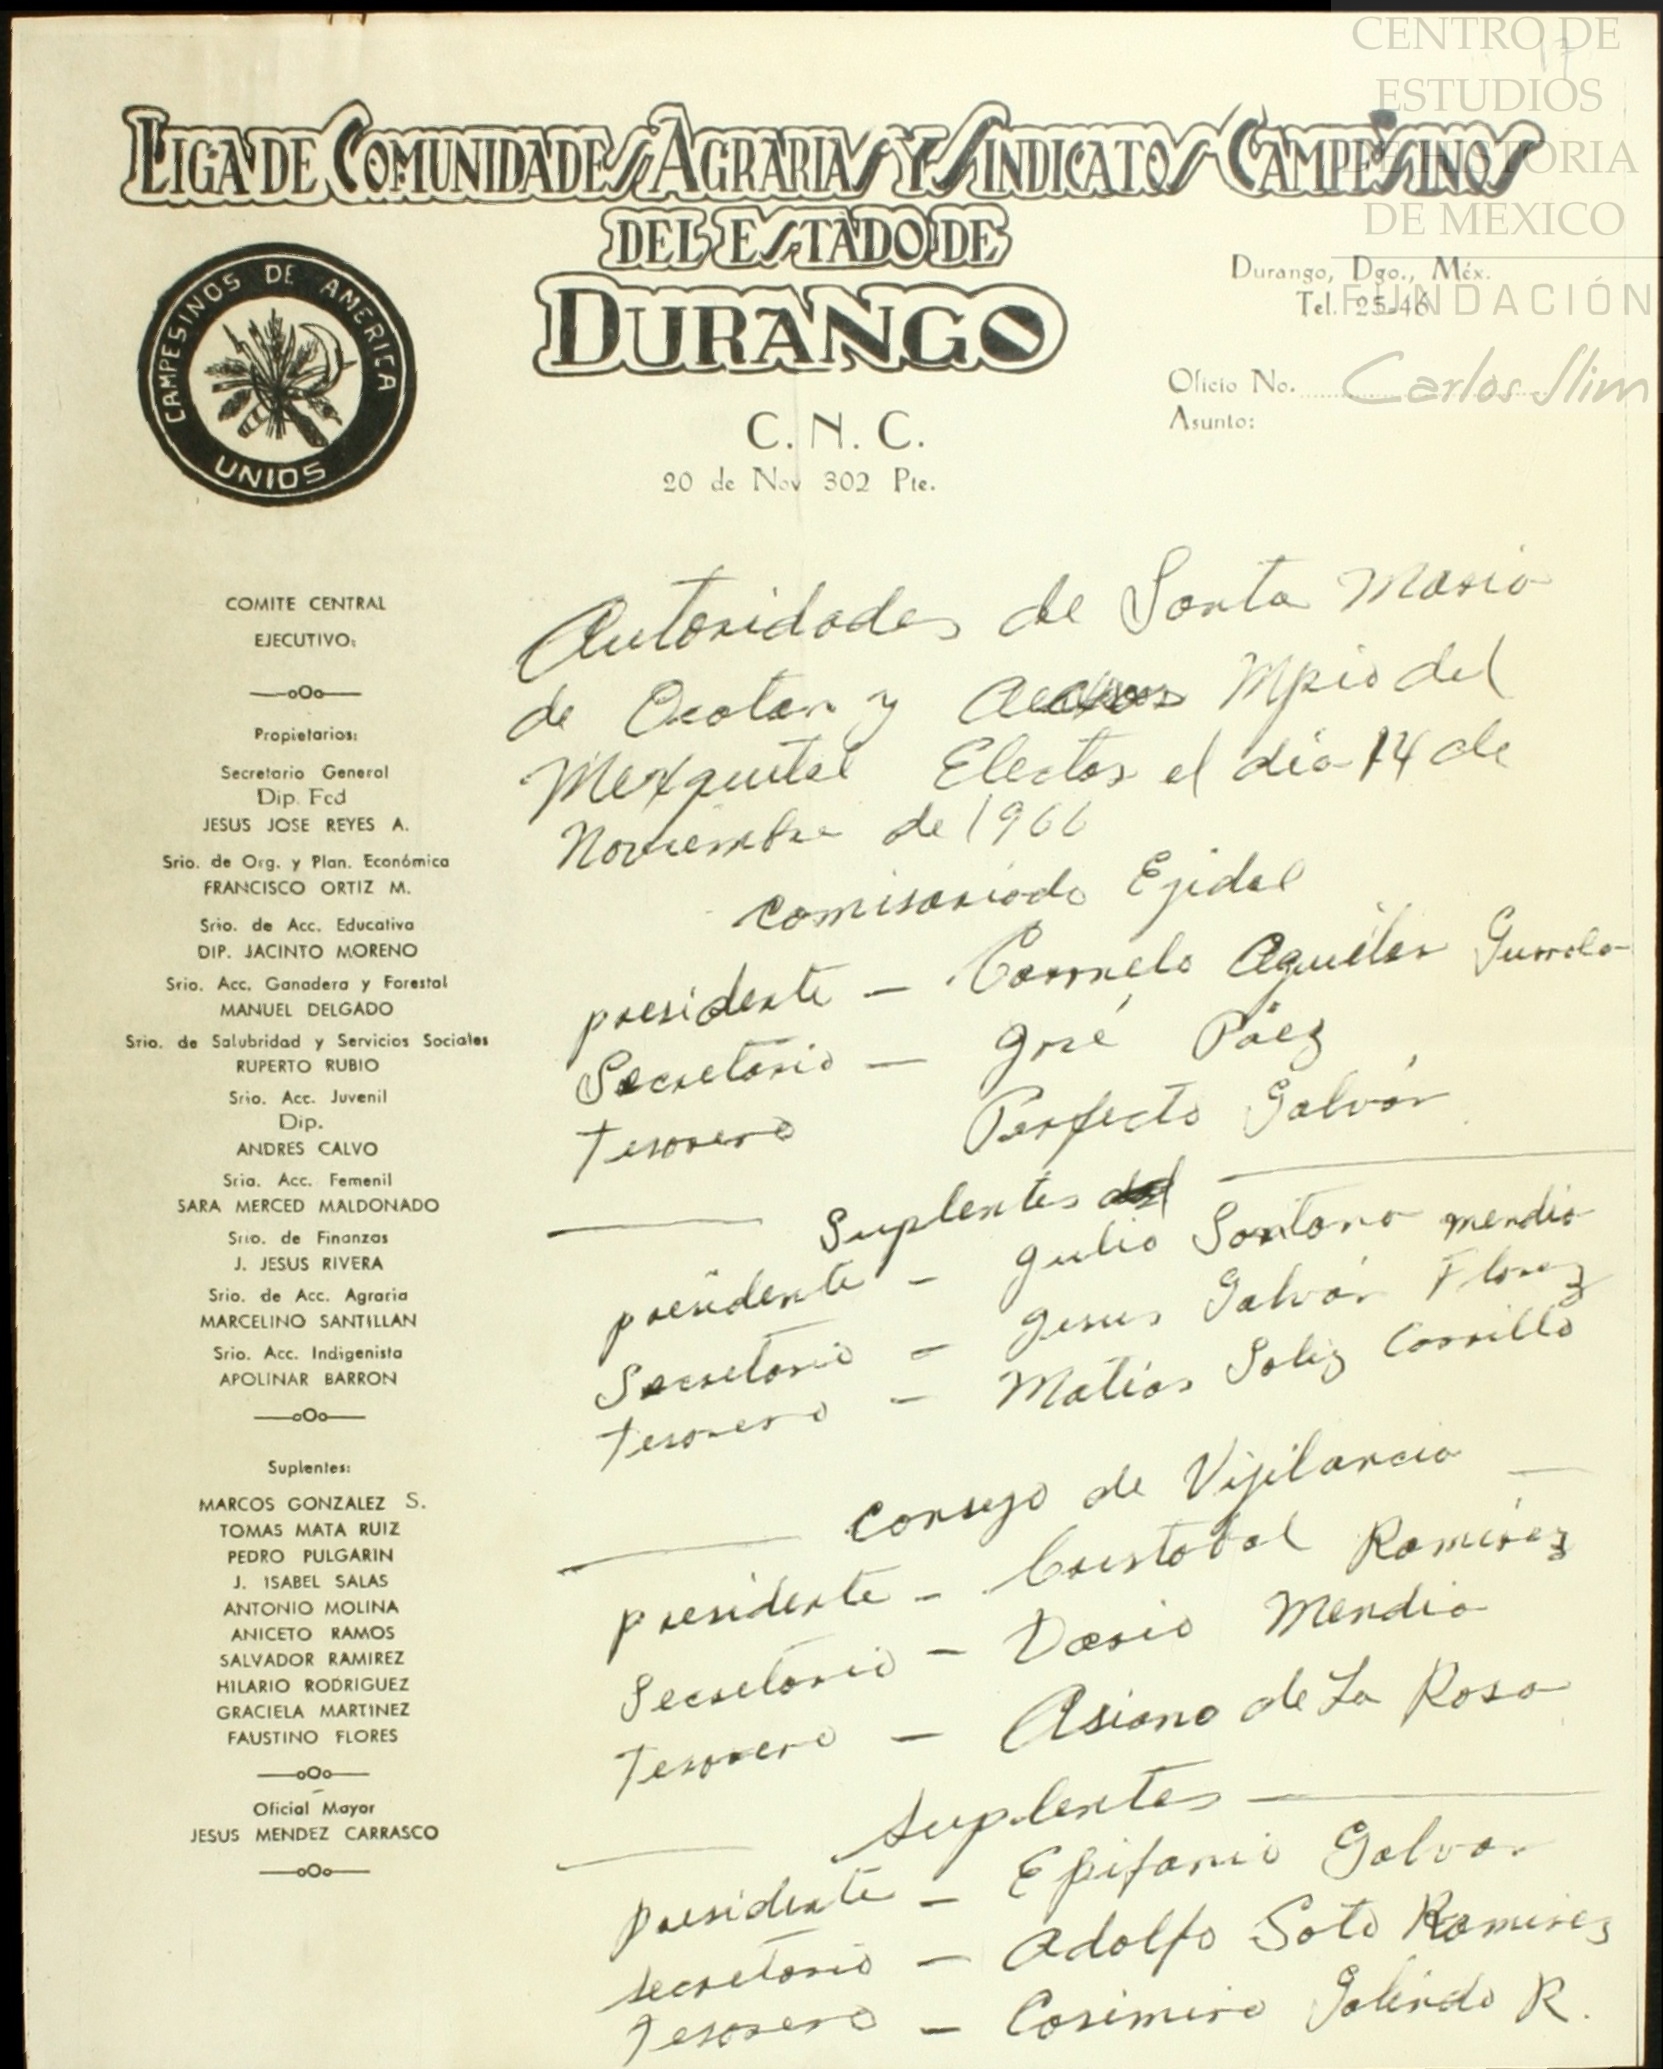 CENTRO DE
ESTUDIOS
DE HISTORIA
DE MEXICO
FUNDACIÓN
Carlos Slim
17
LIGA DE COMUNIDADES AGRARIAS Y SINDICATOS CAMPESINOS
DEL ESTADO DE
DURANGO
CAMPESINOS DE AMERICA
UNIOS
Durango, Dgo., Méx.
Tel. 25-46
Oficio No.
Asunto:
C. N. C.
20 de Nov 302 Pte.
COMITE CENTRAL
EJECUTIVO:
Propietarios:
Secretario General
Dip. Fed
JESUS JOSE REYES A.
Srio. de Org. y Plan. Económica
FRANCISCO ORTIZ M.
Srio. de Acc. Educativa
DIP. JACINTO MORENO
Srio. Acc. Ganadera y Forestal
MANUEL DELGADO
Srio. de Salubridad y Servicios Sociales
RUPERTO RUBIO
Srio. Acc. Juvenil
Dip.
ANDRES CALVO
Sria. Acc. Femenil
SARA MERCED MALDONADO
Srio. de Finanzas
J. JESUS RIVERA
Srio. de Acc. Agraria
MARCELINO SANTILLAN
Srio. Acc. Indigenista
APOLINAR BARRON
Suplentes:
MARCOS GONZALEZ S.
TOMAS MATA RUIZ
PEDRO PULGARIN
J. ISABEL SALAS
ANTONIO MOLINA
ANICETO RAMOS
SALVADOR RAMIREZ
HILARIO RODRIGUEZ
GRACIELA MARTINEZ
FAUSTINO FLORES
Oficial Mayor
JESUS MENDEZ CARRASCO
Autoridades de Santa Maria
de Ocotan y Mpio del
Mexquital Electos el día 14 de
Noviembre de 1966
comisariado Ejidal
presidente - Carmelo Aguilar Gurrola
Secretario - José Páez
Tesorero Perfecto Galván
Suplentes
presidente - Julio Santana mendia
Secretario - Jesus Galván Florez
Tesorero - Matías Soliz Carrillo
consejo de Vijilancia
presidente - Cristobal Ramírez
Secretario - Dario Mendia
Tesorero - Asiano de La Rosa
suplentes
presidente - Epifanio Galvan
secretario - Adolfo Soto Ramirez
Tesorero - Casimiro Galindo R.